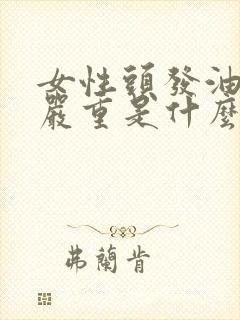 女性頭發油
嚴重是什麼
弗蘭肯